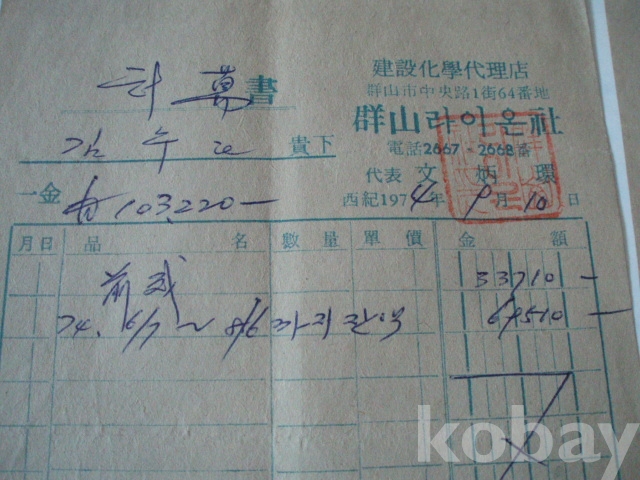 書
建設化學代理店
群山市中央路1街64番地
群山라이온社
電話2667-2668番
代表 文炳環
貴下
一金 103,220-
西紀1974年 9月 10日
月日 品名 數量 單價 金額
前 33710-
74. 6/7 ~ 8/6 까지 69510-
kobay